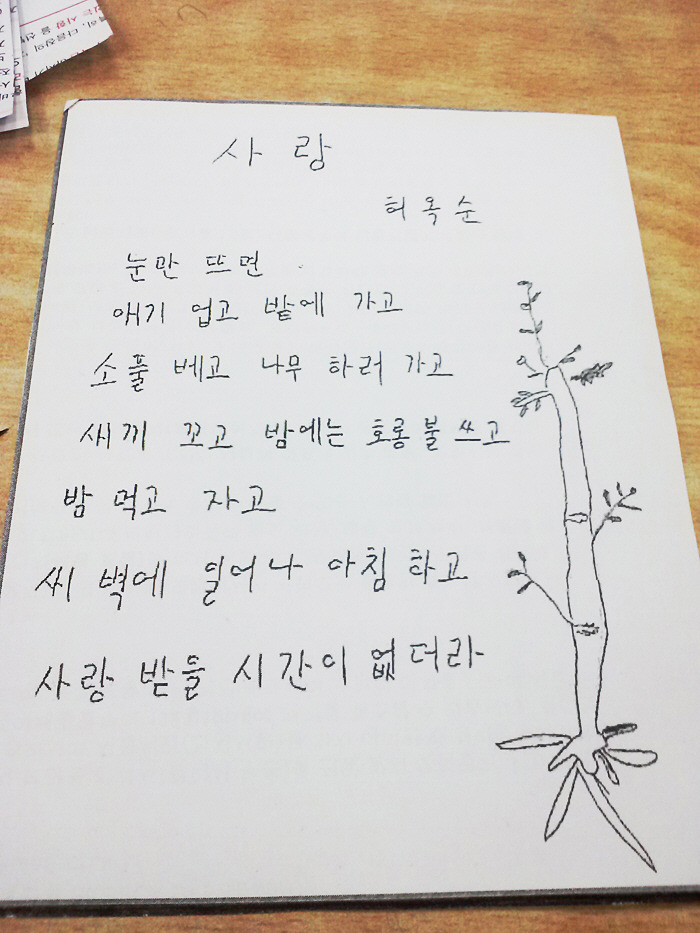 사랑
허옥순
눈만 뜨면
애기 업고 밭에 가고
소풀 베고 나무 하러 가고
새끼 꼬고 밤에는 호롱불 쓰고
밤 먹고 자고
씨벽에 일어나 아침 하고
사랑 받을 시간이 없더라